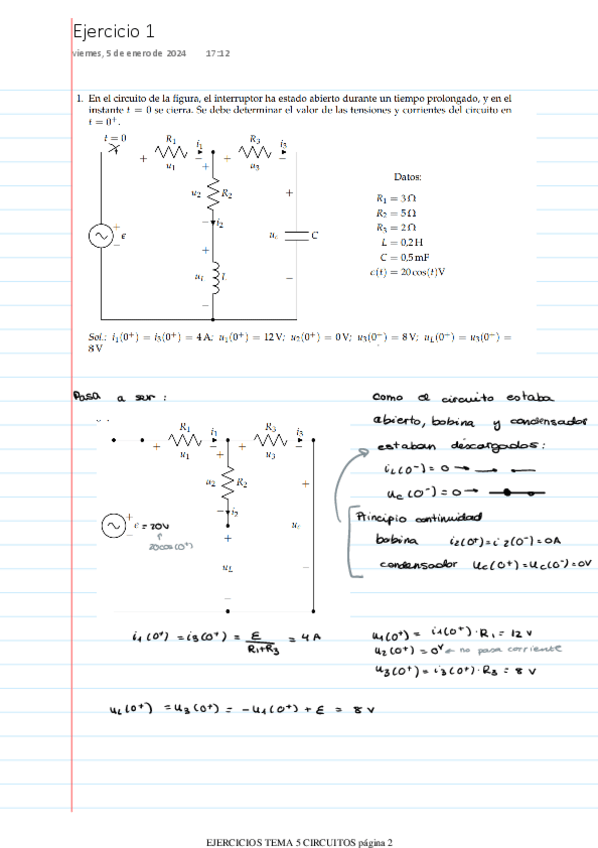 Ejercicio 1
viernes, 5 de enero de 2024 17:12
1. En el circuito de la figura, el interruptor ha estado abierto durante un tiempo prolongado, y en el
instante t = 0 se cierra. Se debe determinar el valor de las tensiones y corrientes del circuito en
t = 0⁺.
t = 0
R₁ i₁ R₃ i₃
+ u₁ + + u₃
u₂ R₂
+
− i₂
+ e
u꜀ C
+
L
−
Datos:
R₁ = 3 Ω
R₂ = 5 Ω
R₃ = 2 Ω
L = 0,2 H
C = 0,5 mF
e(t) = 20 cos(t) V
Sol.: i₁(0⁺) = i₃(0⁺) = 4 A; u₁(0⁺) = 12 V; u₂(0⁺) = 0 V; u₃(0⁺) = 8 V; u_L(0⁺) = u₃(0⁺) =
8 V
Pasa a ser :
R₁ i₁ R₃ i₃
+ u₁ + + u₃
u₂ R₂
+
− i₂
+ e = 20V
20cos(0⁺)
+
u_L
−
Como el circuito estaba
abierto, bobina y condensador
estaban descargados:
i_L(0⁻) = 0 →
u_C(0⁻) = 0 →
Principio continuidad
bobina i₂(0⁺) = i₂(0⁻) = 0A
condensador u_C(0⁺) = u_C(0⁻) = 0V
i₁(0⁺) = i₃(0⁺) = E / R₁+R₃ = 4 A
u₁(0⁺) = i₁(0⁺) · R₁ = 12 V
u₂(0⁺) = 0V ← no pasa corriente
u₃(0⁺) = i₃(0⁺) · R₃ = 8 V
u_L(0⁺) = u₃(0⁺) = −u₁(0⁺) + E = 8 V
EJERCICIOS TEMA 5 CIRCUITOS página 2